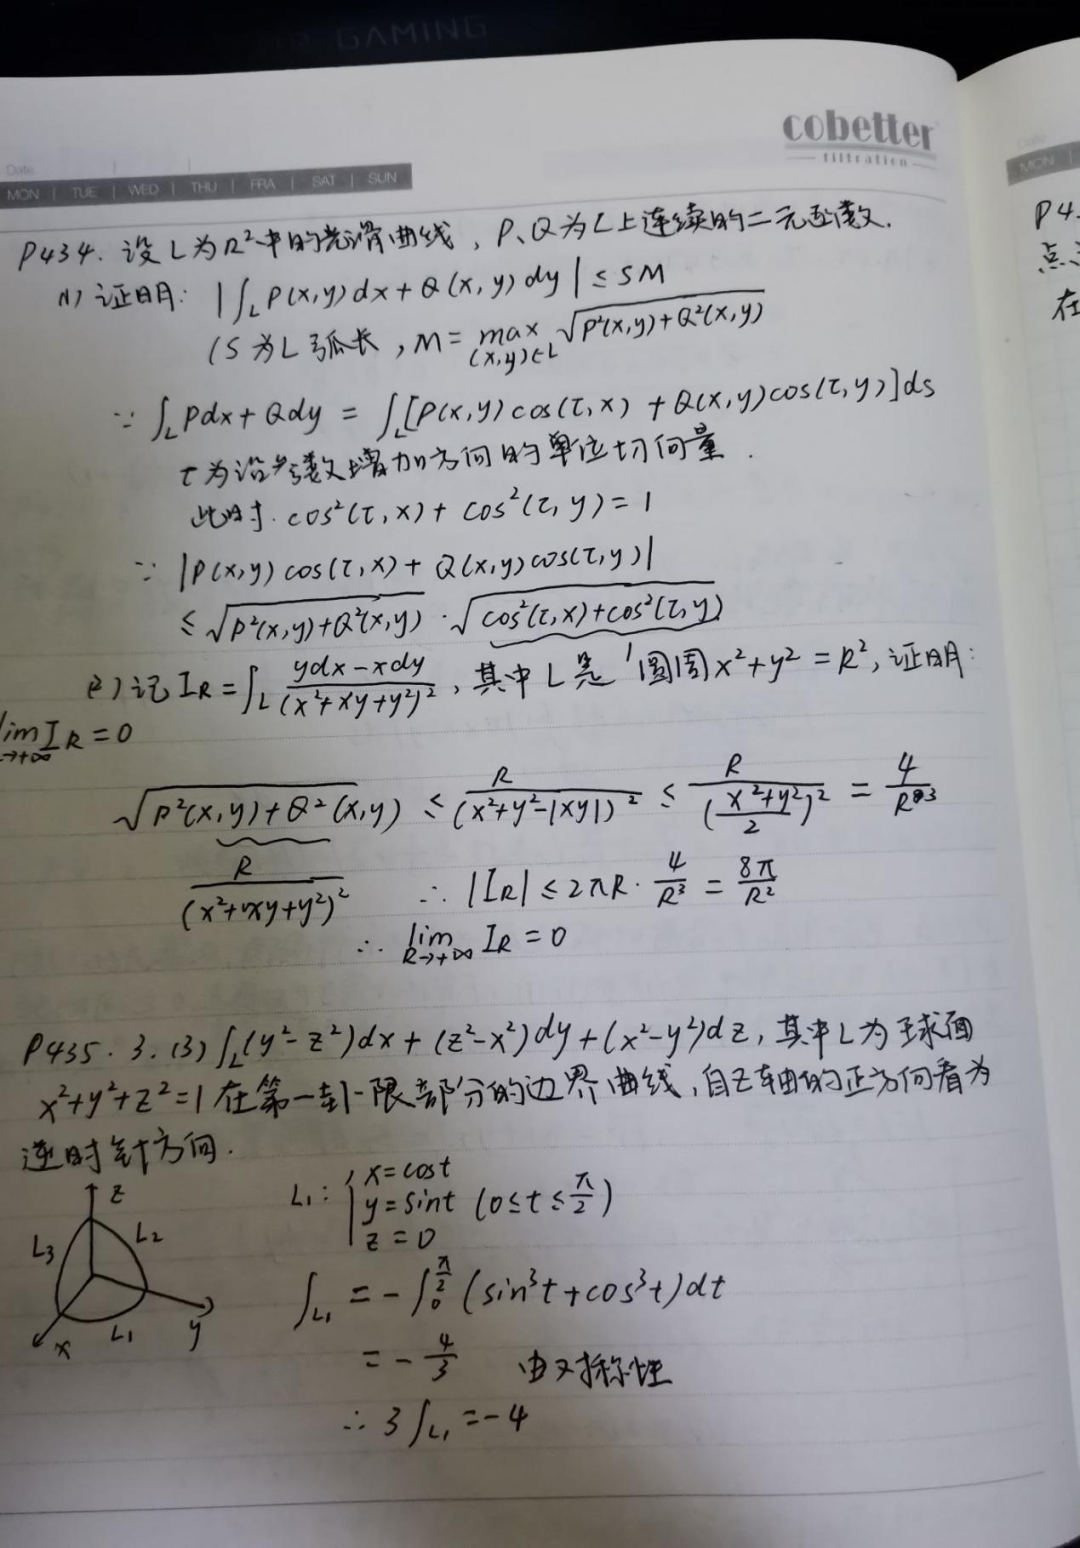 GAMING
cobetter
filtration
Date
MON | TUE | WED | THU | FRA | SAT | SUN
Date
MON |
P434. 设L为R²中的光滑曲线，P、Q为L上连续的二元函数.
(1) 证明: |∫_L P(x,y)dx+Q(x,y)dy| ≤ SM
(S为L弧长，M= max_{(x,y)∈L} √(P²(x,y)+Q²(x,y))
∵ ∫_L Pdx+Qdy = ∫_L[P(x,y)cos(τ,x) + Q(x,y)cos(τ,y)]ds
τ为沿参数增加方向的单位切向量.
此时. cos²(τ,x) + cos²(τ,y) = 1
∵ |P(x,y)cos(τ,x) + Q(x,y)cos(τ,y)|
≤ √(P²(x,y)+Q²(x,y)) · √(cos²(τ,x)+cos²(τ,y))
1
(2) 记 I_R = ∫_L (ydx-xdy)/(x²+xy+y²)², 其中L是圆周x²+y²=R², 证明:
lim I_R = 0
→+∞
√(P²(x,y)+Q²(x,y)) ≤ R/(x²+y²-|xy|)² ≤ R/((x²+y²)/2)² = 4/R³
R/(x²+xy+y²)²
∴ |I_R| ≤ 2πR · 4/R³ = 8π/R²
∴ lim_{R→+∞} I_R = 0
P435. 3. (3) ∫_L(y²-z²)dx + (z²-x²)dy + (x²-y²)dz, 其中L为球面
x²+y²+z²=1在第一卦限部分的边界曲线, 自z轴的正方向看为
逆时针方向.
L₁: { x=cost
y=sint (0≤t≤π/2)
z=0
z
L₃
L₂
x
L₁
y
∫_{L₁} = -∫_0^{π/2} (sin³t+cos³t)dt
= -4/3 由对称性
∴ 3∫_{L₁} = -4
P4
点
在